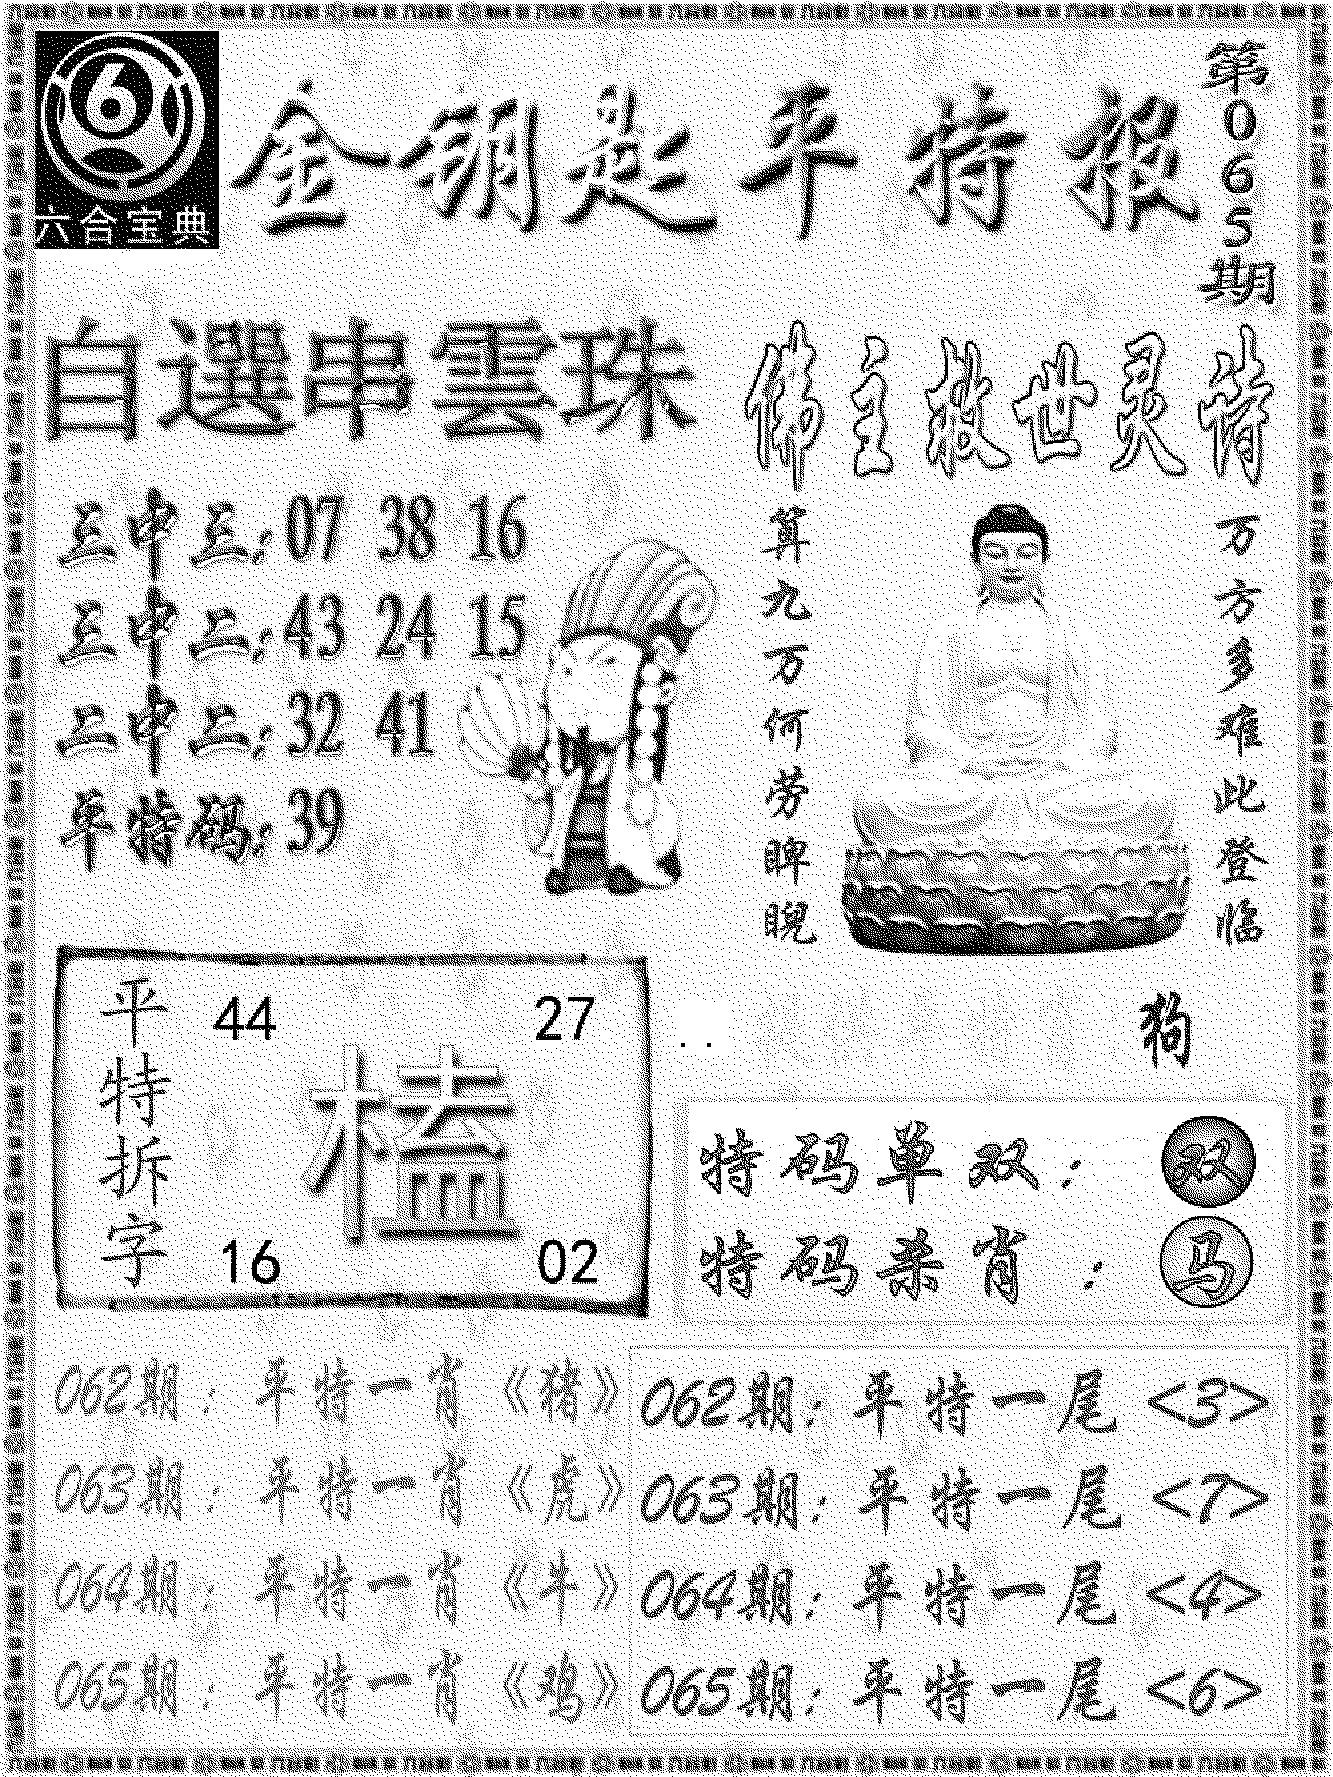 六合宝典
金钥匙平特报
第065期
自選串雲珠
三中三:07 38 16
三中二:43 24 15
二中二:32 41
平特码:39
佛主救世灵诗
万方多难此登临
算九万何劳睥睨
狗
平特拆字
44 27
榼
16 02
特码单双: 双
特码杀肖: 马
062期: 平特一肖《猪》
063期: 平特一肖《虎》
064期: 平特一肖《牛》
065期: 平特一肖《鸡》
062期: 平特一尾<3>
063期: 平特一尾<7>
064期: 平特一尾<4>
065期: 平特一尾<6>